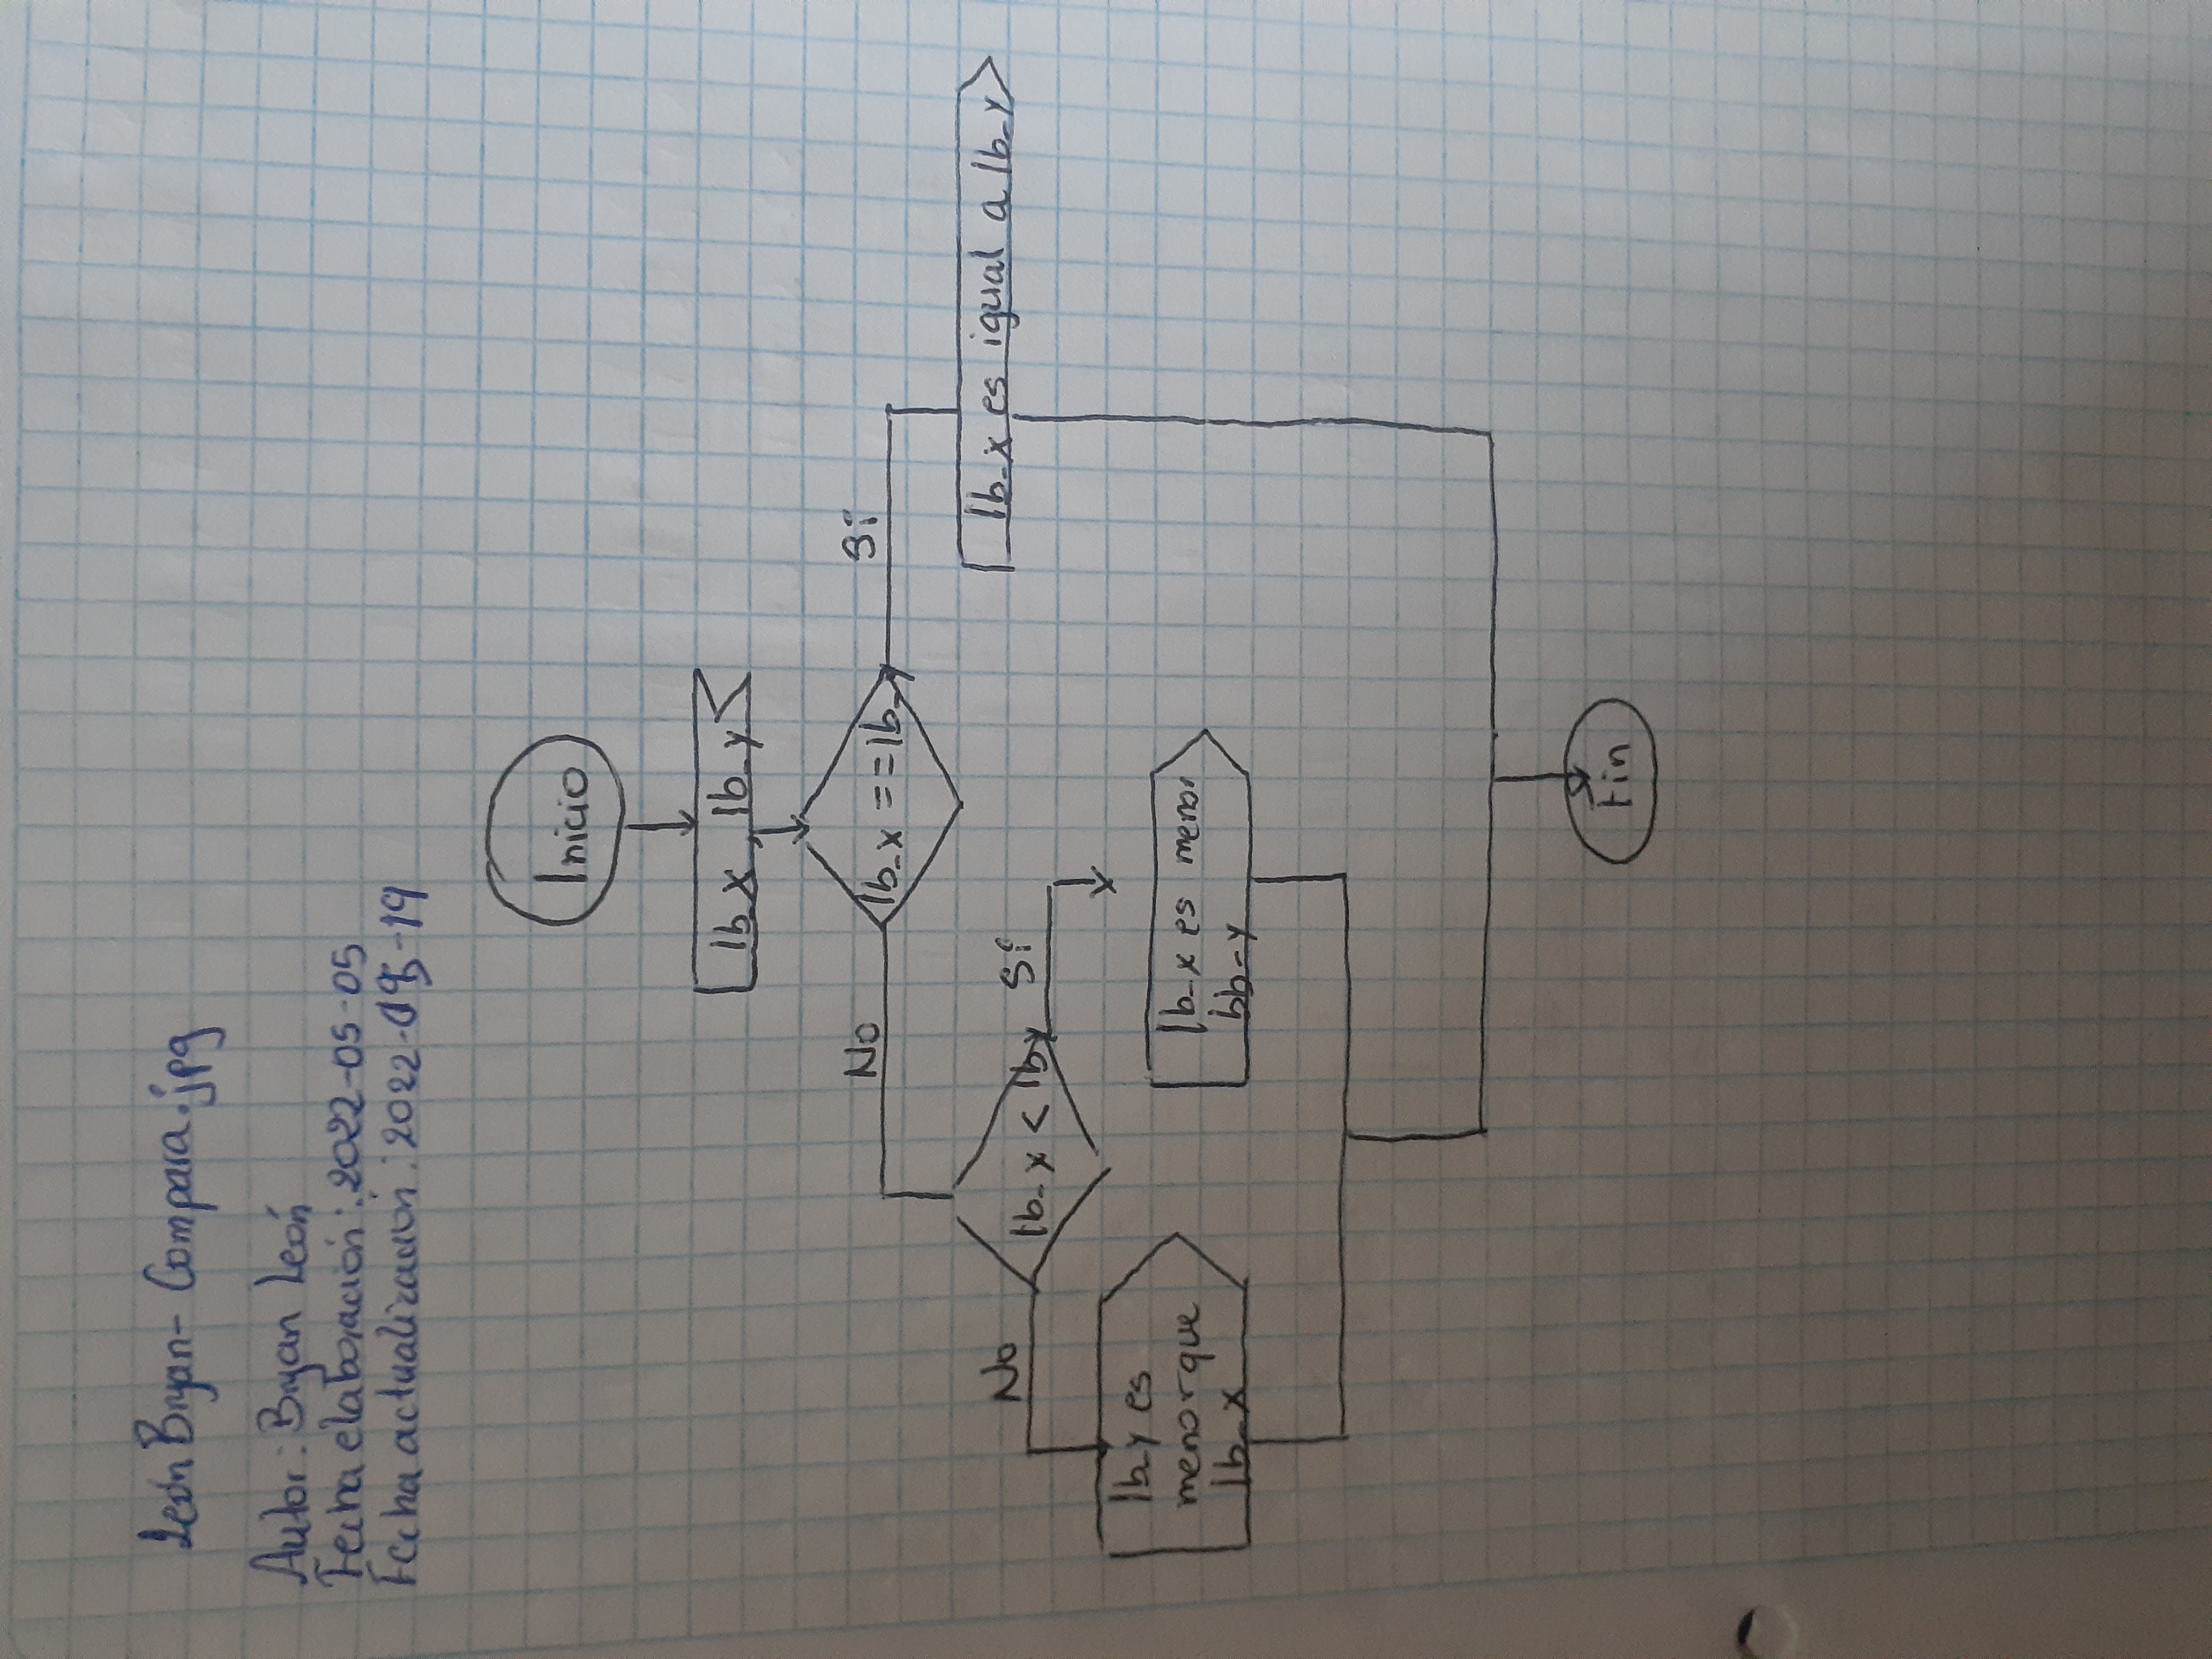 León Bryan- Compara.jpg
Autor: Bryan León
Fecha elaboración: 2022-05-05
Fecha actualización: 2022-05-19
Inicio
lb_x, lb_y
No
lb_x == lb_y
Si
No
lb_x < lb y
Si
lb_x es igual a lb_y
lb_y es
menor que
lb_x
lb_x es menor
bb_y
Fin